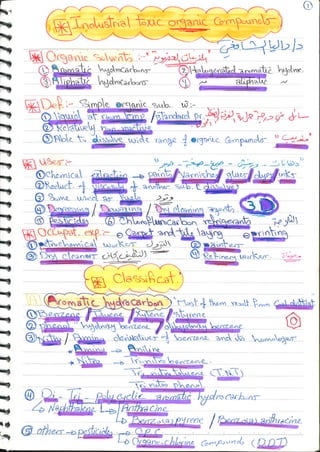 1
Industrial toxic organic compounds
Organic Solvents :-
① Aromatic hydrocarbons ② Halogenated aromatic hydro.
③ Aliphatic hydrocarbons ④ ~ aliphatic ~
Def :- Simple organic sub. w :-
① liquid at room temp. / standard pr.
② Relatively non-reactive
③ Able to dissolve wide range of organic compounds.
Uses :-
① Chemical extraction → paints / Varnishes / glues / dyes / inks
② Reduct. of viscosity of another sub.
③ Some used as fuels
④ Degreasing / Dry cleaning agents.
⑤ Pesticides ⑥ Chlorofluorocarbon refrigerants
Occupat. exp. :- Carpet and tile laying printing
① Petrochemical worker ② painters
③ Dry cleaner ④ Refinery worker.
Classificat.
Aromatic hydrocarbon : Most of them result from Coal distillat
① Benzene / Toluene / Xylene / Styrene
② phenol hydroxy benzene / dihydroxy benzene
③ Nitro / Amino derivatives of benzene and its homologues
Amino → Aniline
Nitro → Tri nitro benzene
Tri nitro toluene (TNT)
Tri nitro phenol
④ Di - Tri - Poly cyclic aromatic hydrocarbons
Naphthalene Anthracine
Benzo(a) pyrene / Benzo(a) anthracine
⑤ others → pesticides
Organo-chlorine compounds (DDT)